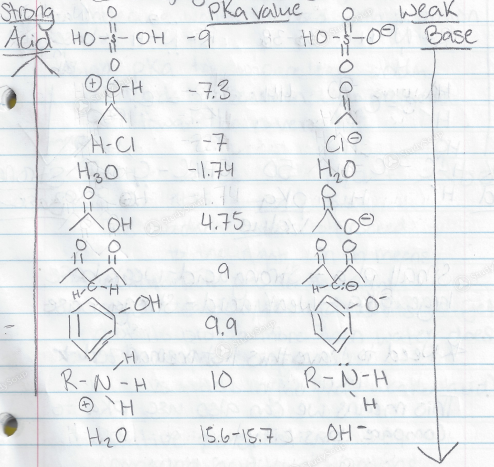 Strong Acid pKa value Weak Base
O
HO-S-OH -9 HO-S-O⊖
O O
⊕O-H -7.3 O
H-Cl -7 Cl⊖
H₃O -1.74 H₂O
O O
OH 4.75 O⊖
O O O O
H-C-H 9 H-C:⊖
OH 9.9 O⁻
H
R-N-H 10 R-N̈-H
⊕ H H
H₂O 15.6-15.7 OH⁻